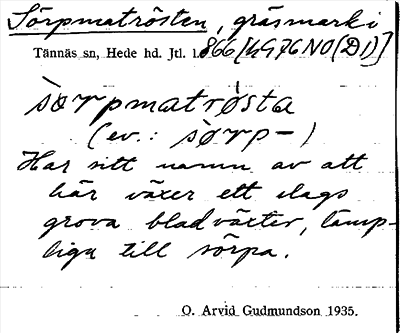 Sörpmatrösten, gräsmark i
Tännäs sn, Hede hd. Jtl. l. 866 [4976NO(D1)]
sørpmatrøsta
(ev.: sørp-)
Har sitt namn av att
här växer ett slags
grova bladväxter, lämp-
liga till sörpa.
O. Arvid Gudmundson 1935.